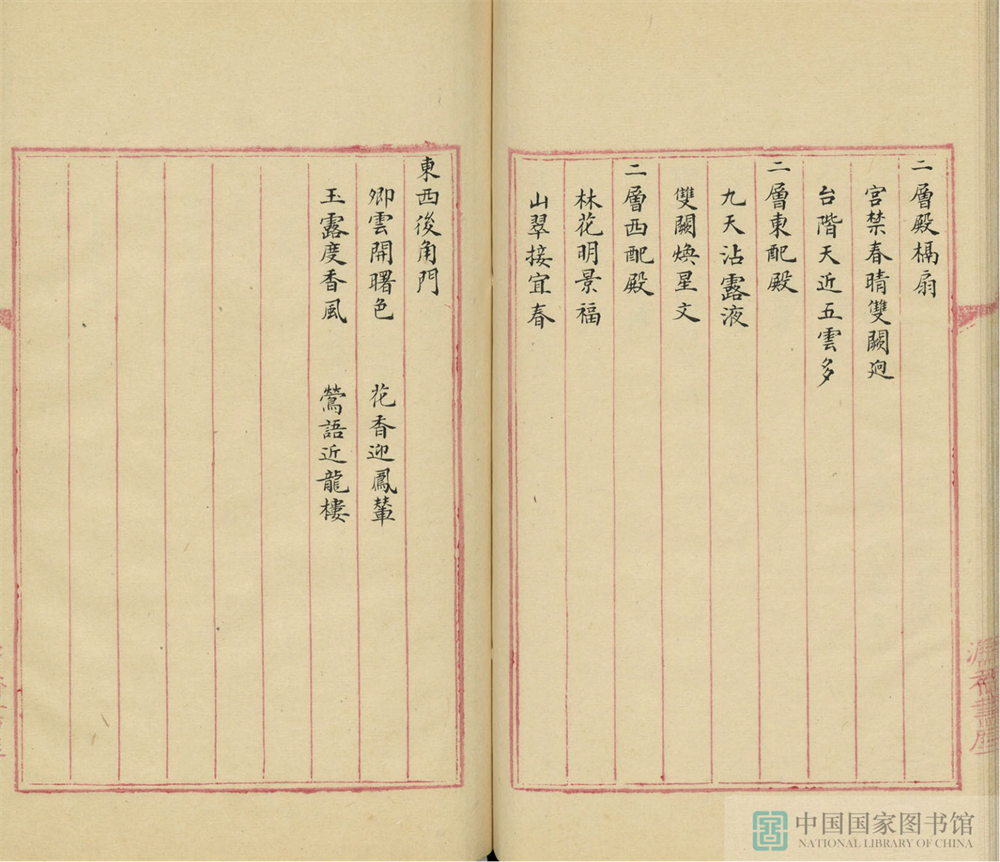 二層殿槅扇
宮禁春晴雙闕迥
台階天近五雲多
二層東配殿
九天沾露液
雙闕煥星文
二層西配殿
林花明景福
山翠接宜春
東西後角門
卿雲開曙色 花香迎鳳輦
玉露度香風 鶯語近龍樓
中国国家图书馆
NATIONAL LIBRARY OF CHINA